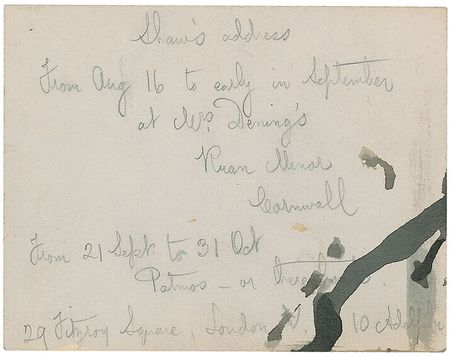 Shaw's address
From Aug 16 to early in September
at Mrs. Dening's
Ruan Minor
Cornwall
From 21 Sept. to 31 Oct
Patmos - or
29 Fitzroy Square, London 10 Adelphi